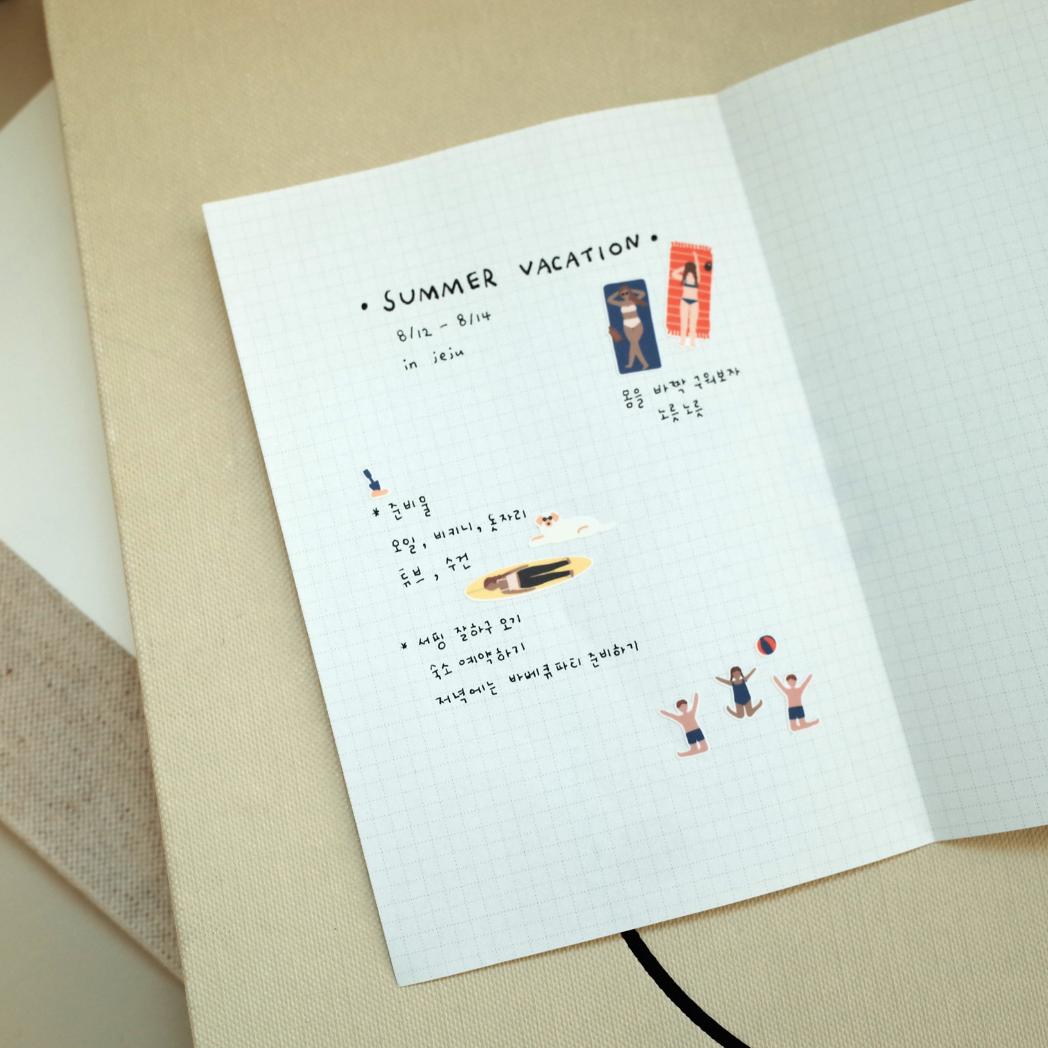 • SUMMER VACATION •
8/12 - 8/14
in jeju
몸을 바짝 구워보자
노릇노릇
* 준비물
오일, 비키니, 돗자리
튜브, 수건
* 서핑 잘하구 오기
숙소 예약하기
저녁에는 바베큐파티 준비하기